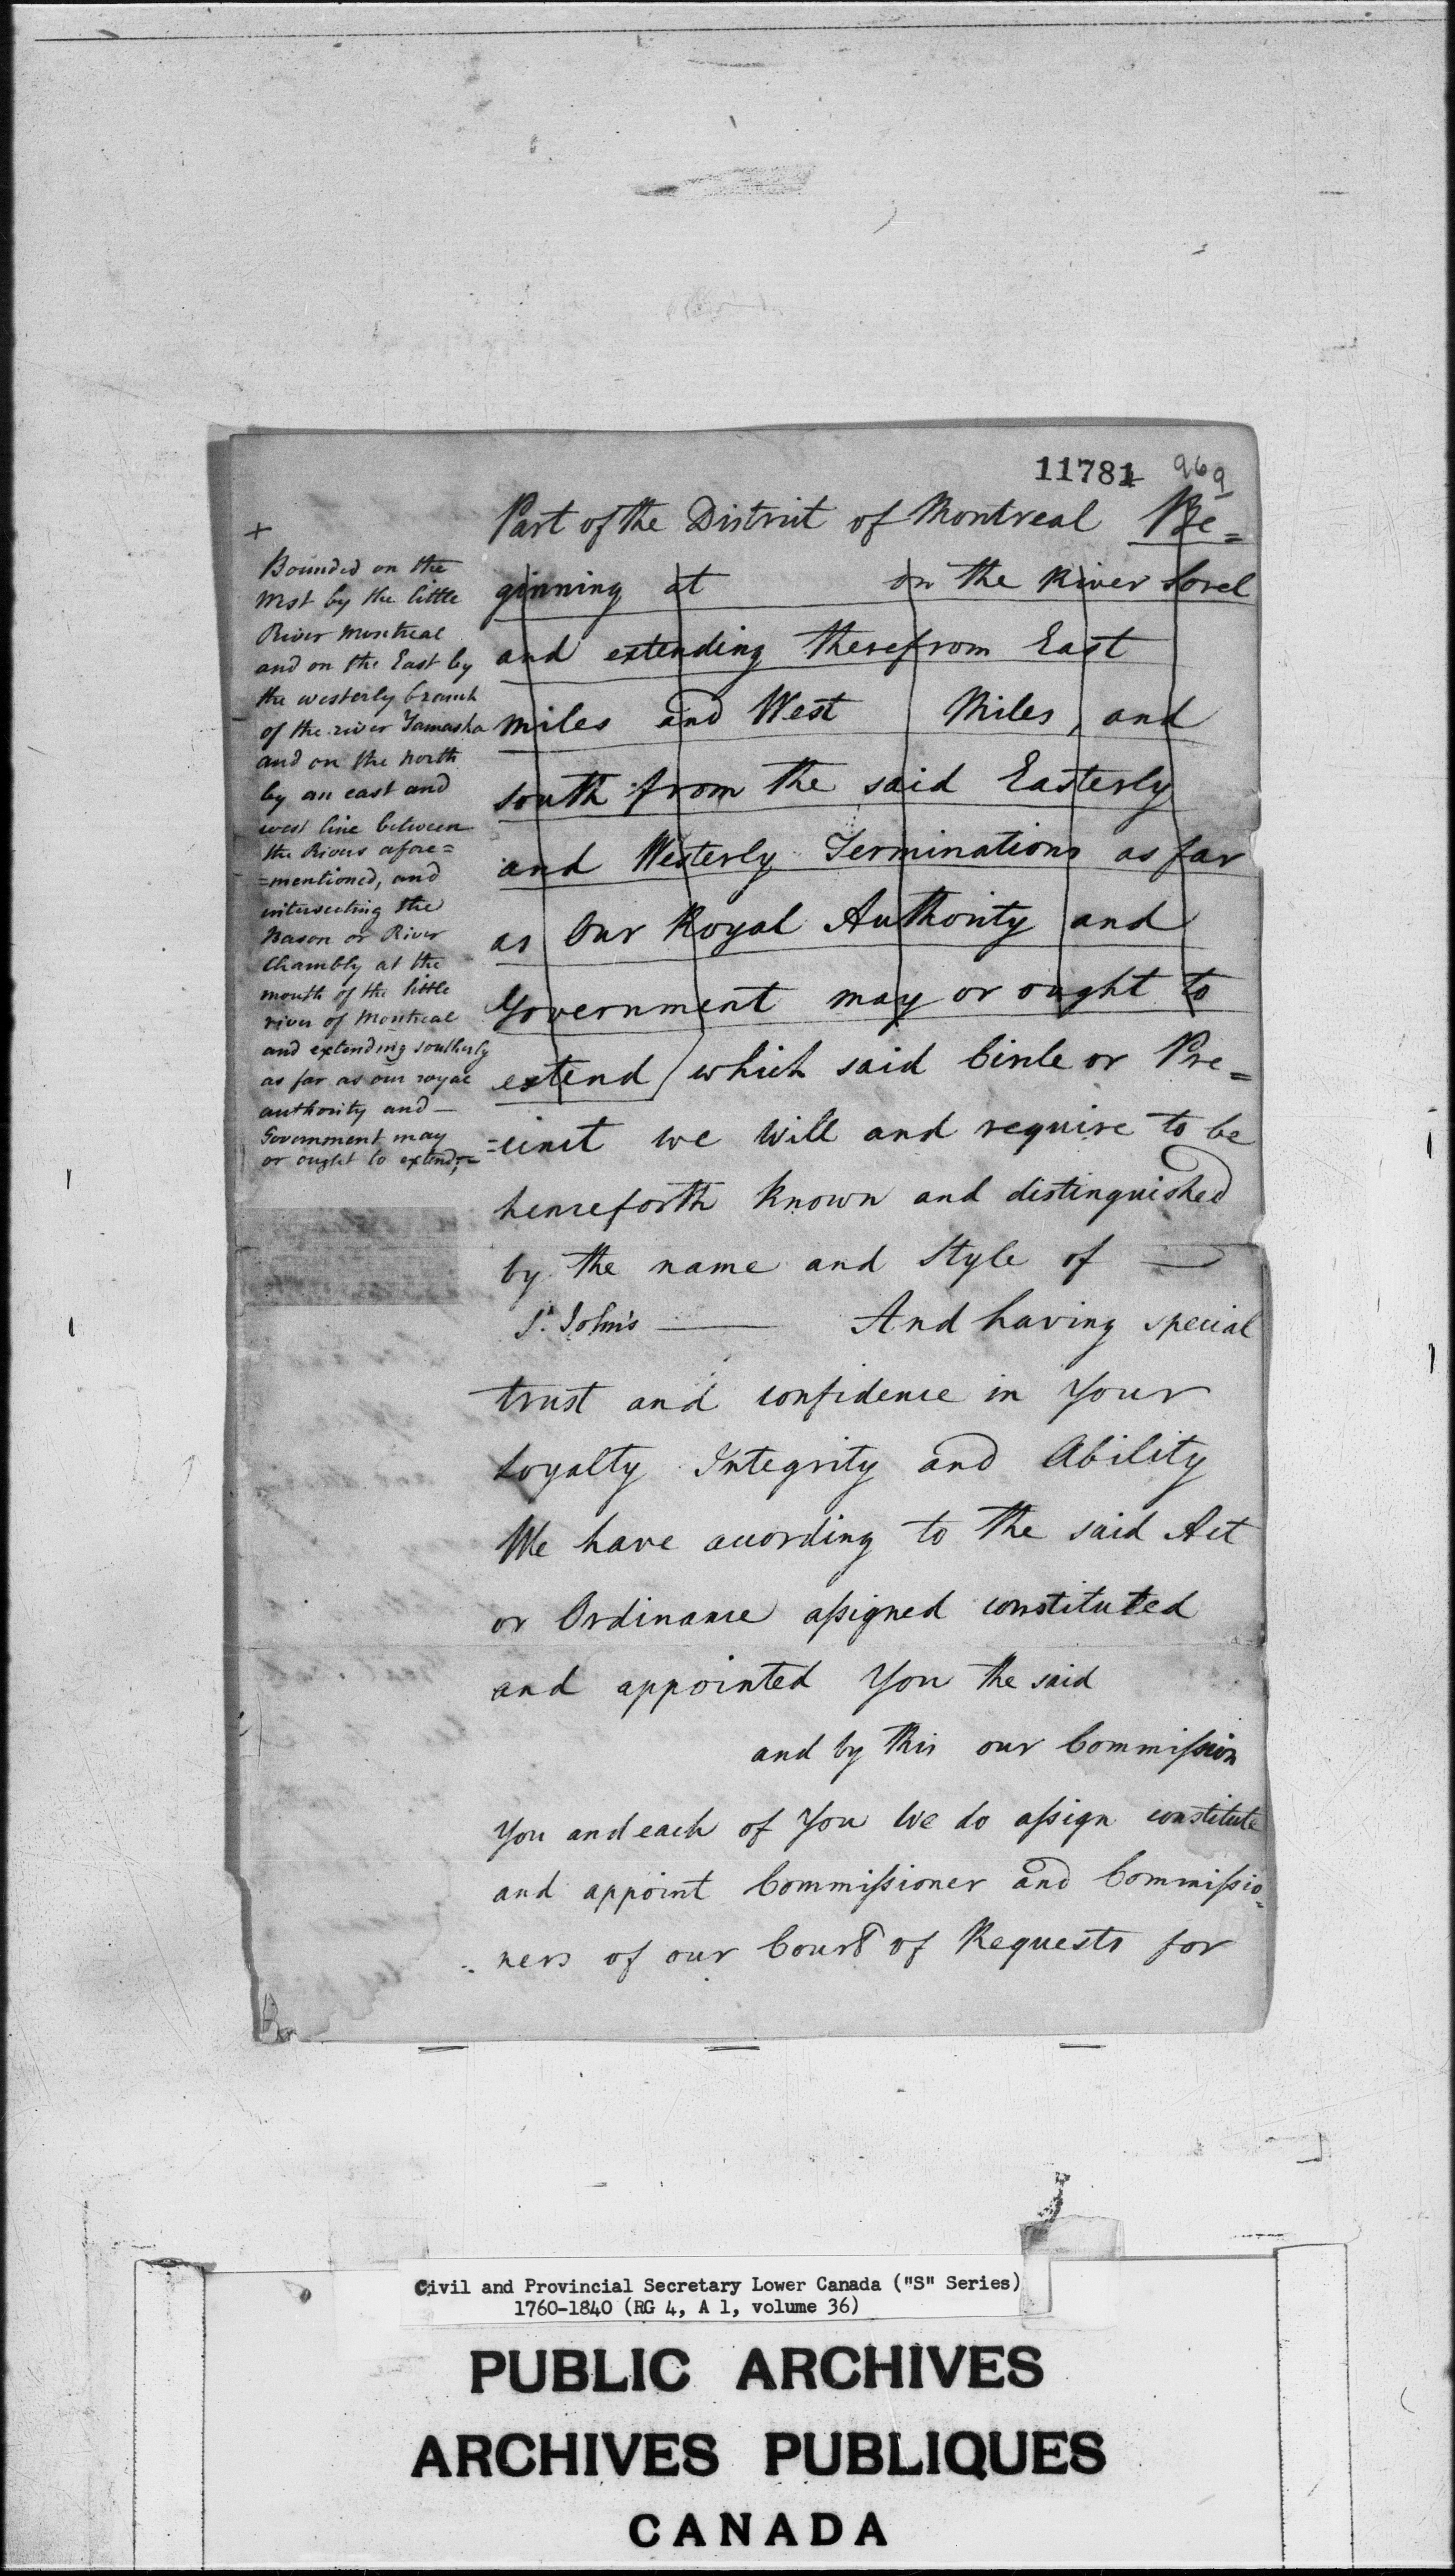 11781 969
Part of the District of Montreal Be=
ginning at on the River Sorel
and extending therefrom East
miles and West Miles, and
south from the said Easterly
and Westerly Terminations as far
as Our Royal Authority and
Government may or ought to
extend which said Circle or Pre=
=cinct we will and require to be
henceforth known and distinguished
by the name and Style of —
St. John's — And having special
trust and confidence in Your
Loyalty Integrity and Ability
We have according to the said Act
or Ordinance assigned constituted
and appointed You the said
and by this our Commission
You and each of You We do assign constitute
and appoint Commissioner and Commissio=
ners of our Court of Requests for
+
Bounded on the
West by the little
River Montreal
and on the East by
the westerly branch
of the river Yamaska
and on the North
by an east and
west line between
the Rivers afore=
=mentioned, and
intersecting the
Bason or River
Chambly at the
mouth of the little
river of Montreal
and extending southerly
as far as our royal
authority and —
Government may
or ought to extend;
Civil and Provincial Secretary Lower Canada ("S" Series)
1760-1840 (RG 4, A 1, volume 36)
PUBLIC ARCHIVES
ARCHIVES PUBLIQUES
CANADA